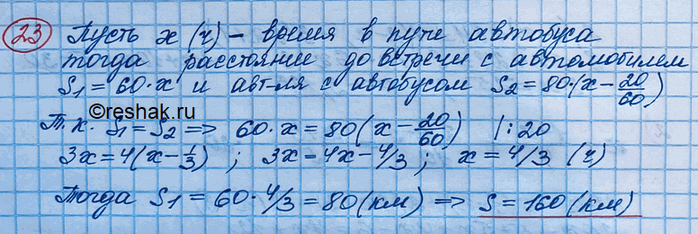 23 Пусть x (ч) – время в пути автобуса
тогда расстояние до встречи с автомобилем
S₁ = 60·x и авт-ля с автобусом S₂ = 80·(x – 20/60)
©reshak.ru
Т.к. S₁ = S₂ => 60·x = 80(x – 20/60) |:20
3x = 4(x – 1/3) ; 3x – 4x – 4/3 ; x = 4/3 (ч)
Тогда S₁ = 60·4/3 = 80 (км) => S = 160 (км)